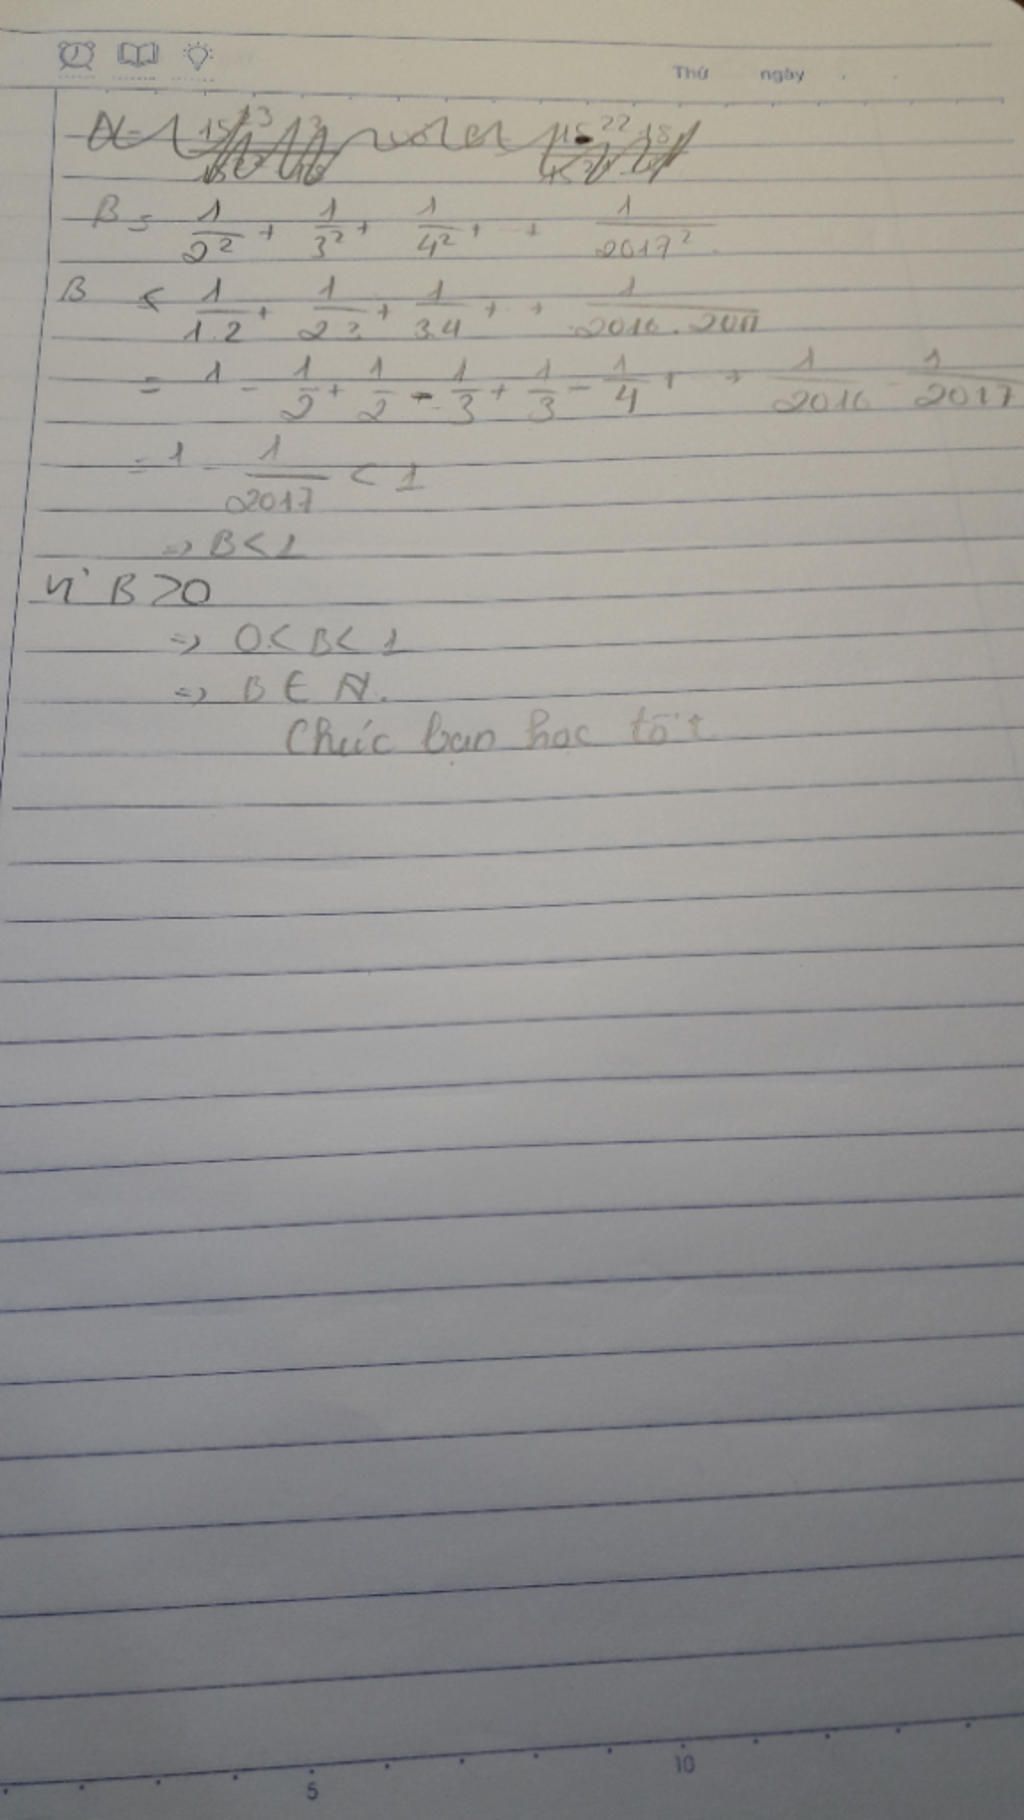 Thứ ngày
B = 1/2² + 1/3² + 1/4² + + 1/2017²
B < 1/1.2 + 1/2.3 + 1/3.4 + + 1/2016.2017
= 1 - 1/2 + 1/2 - 1/3 + 1/3 - 1/4 + + 1/2016 - 1/2017
= 1 - 1/2017 < 1
=> B < 1
Vì B > 0
=> 0 < B < 1
=> B ∈ N.
Chúc bạn học tốt
5 10